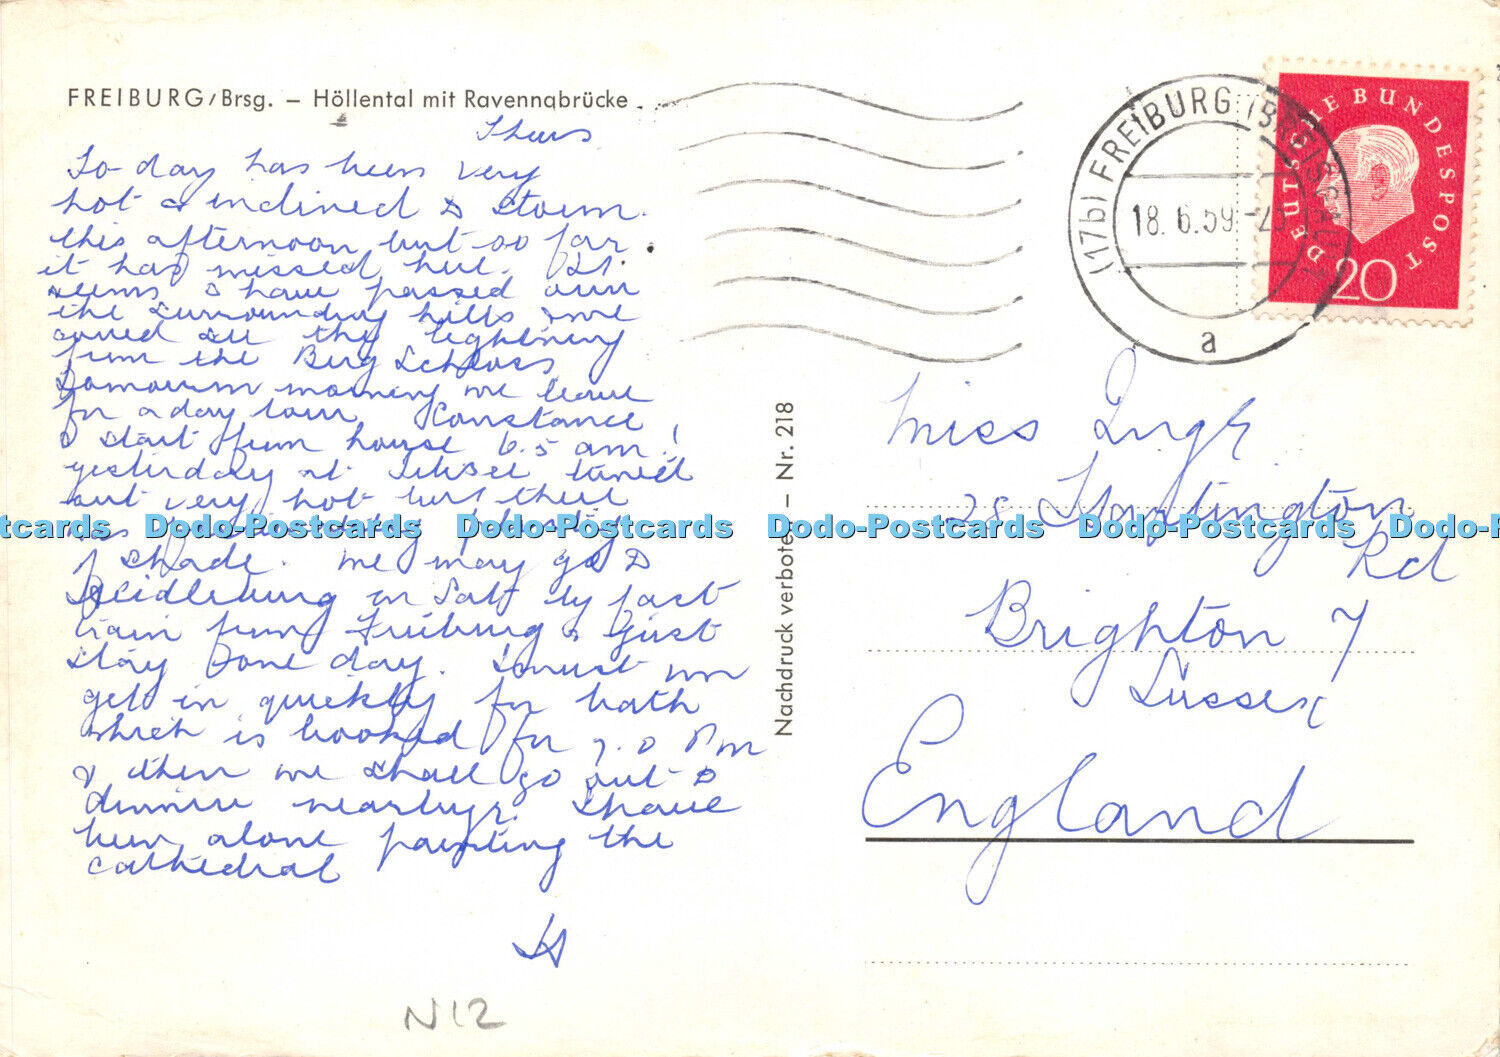 FREIBURG/Brsg. – Höllental mit Ravennabrücke
Thurs
To-day has been very
hot & inclined to storm
this afternoon but so far
it has missed here. It
seems to have passed over
the surrounding hills & we
could see the lightning
from the Berg Schloss
Tomorrow morning we leave
for a day tour Constance
& start from house 6.5 am!
yesterday at Titisee turned
out very hot but there
was plenty
of shade. We may go to
Heidleburg on Sat by fast
train from Freiburg & just
stay one day. I must now
get in quickly for bath
which is booked for 7.0 Pm
& then we shall go out to
dinner nearby. I have
been alone painting the
cathedral
N12
Nachdruck verboten – Nr. 218
(17b) FREIBURG (BREISGAU)
18. 6. 59
a
DEUTSCHE BUNDESPOST
20
Miss Inge
28
Rd
Brighton 7
Sussex
England
Dodo-Postcards Dodo-Postcards Dodo-Postcards Dodo-Postcards